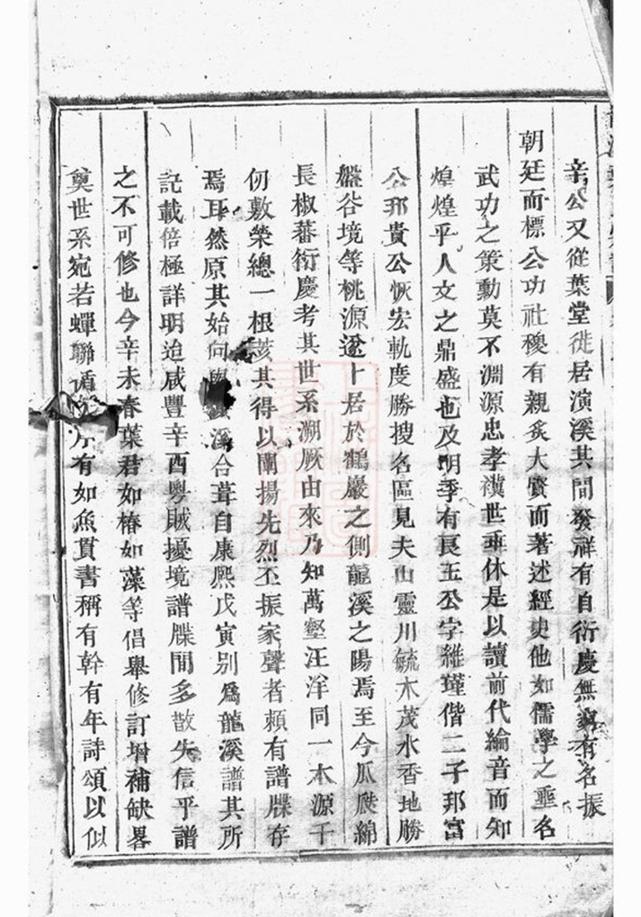 辛公又從葉堂徙居演溪其間發祥有自衍慶無窮有名振
朝廷而標公功社稷有親炙大賢而著述經史他如儒學之垂名
武功之策勳莫不淵源忠孝漢世垂休是以讀前代綸音而知
煌煌乎人文之鼎盛也及明季有良玉公字維瑾偕二子邦富
公邦貴公恢宏軌度勝搜名區見夫山靈川毓木茂水香地勝
盤谷境等桃源遂卜居於鶴巖之側龍溪之陽焉至今瓜瓞綿
長椒蕃衍慶考其世系溯厥由來乃知萬壑汪洋同一木源千
仞敷榮總一根荄其得以闡揚先烈丕振家聲者賴有譜牒存
焉耳然原其始向與溪合葺自康熙戊寅別為龍溪譜其所
記載倍極詳明迨咸豐辛酉粵賊擾境譜牒間多散失信乎譜
之不可修也今辛未春葉君如椿如藻等倡舉修訂增補缺畧
奠世系宛若蟬聯遁有如魚貫書稱有幹有年詩頌以似